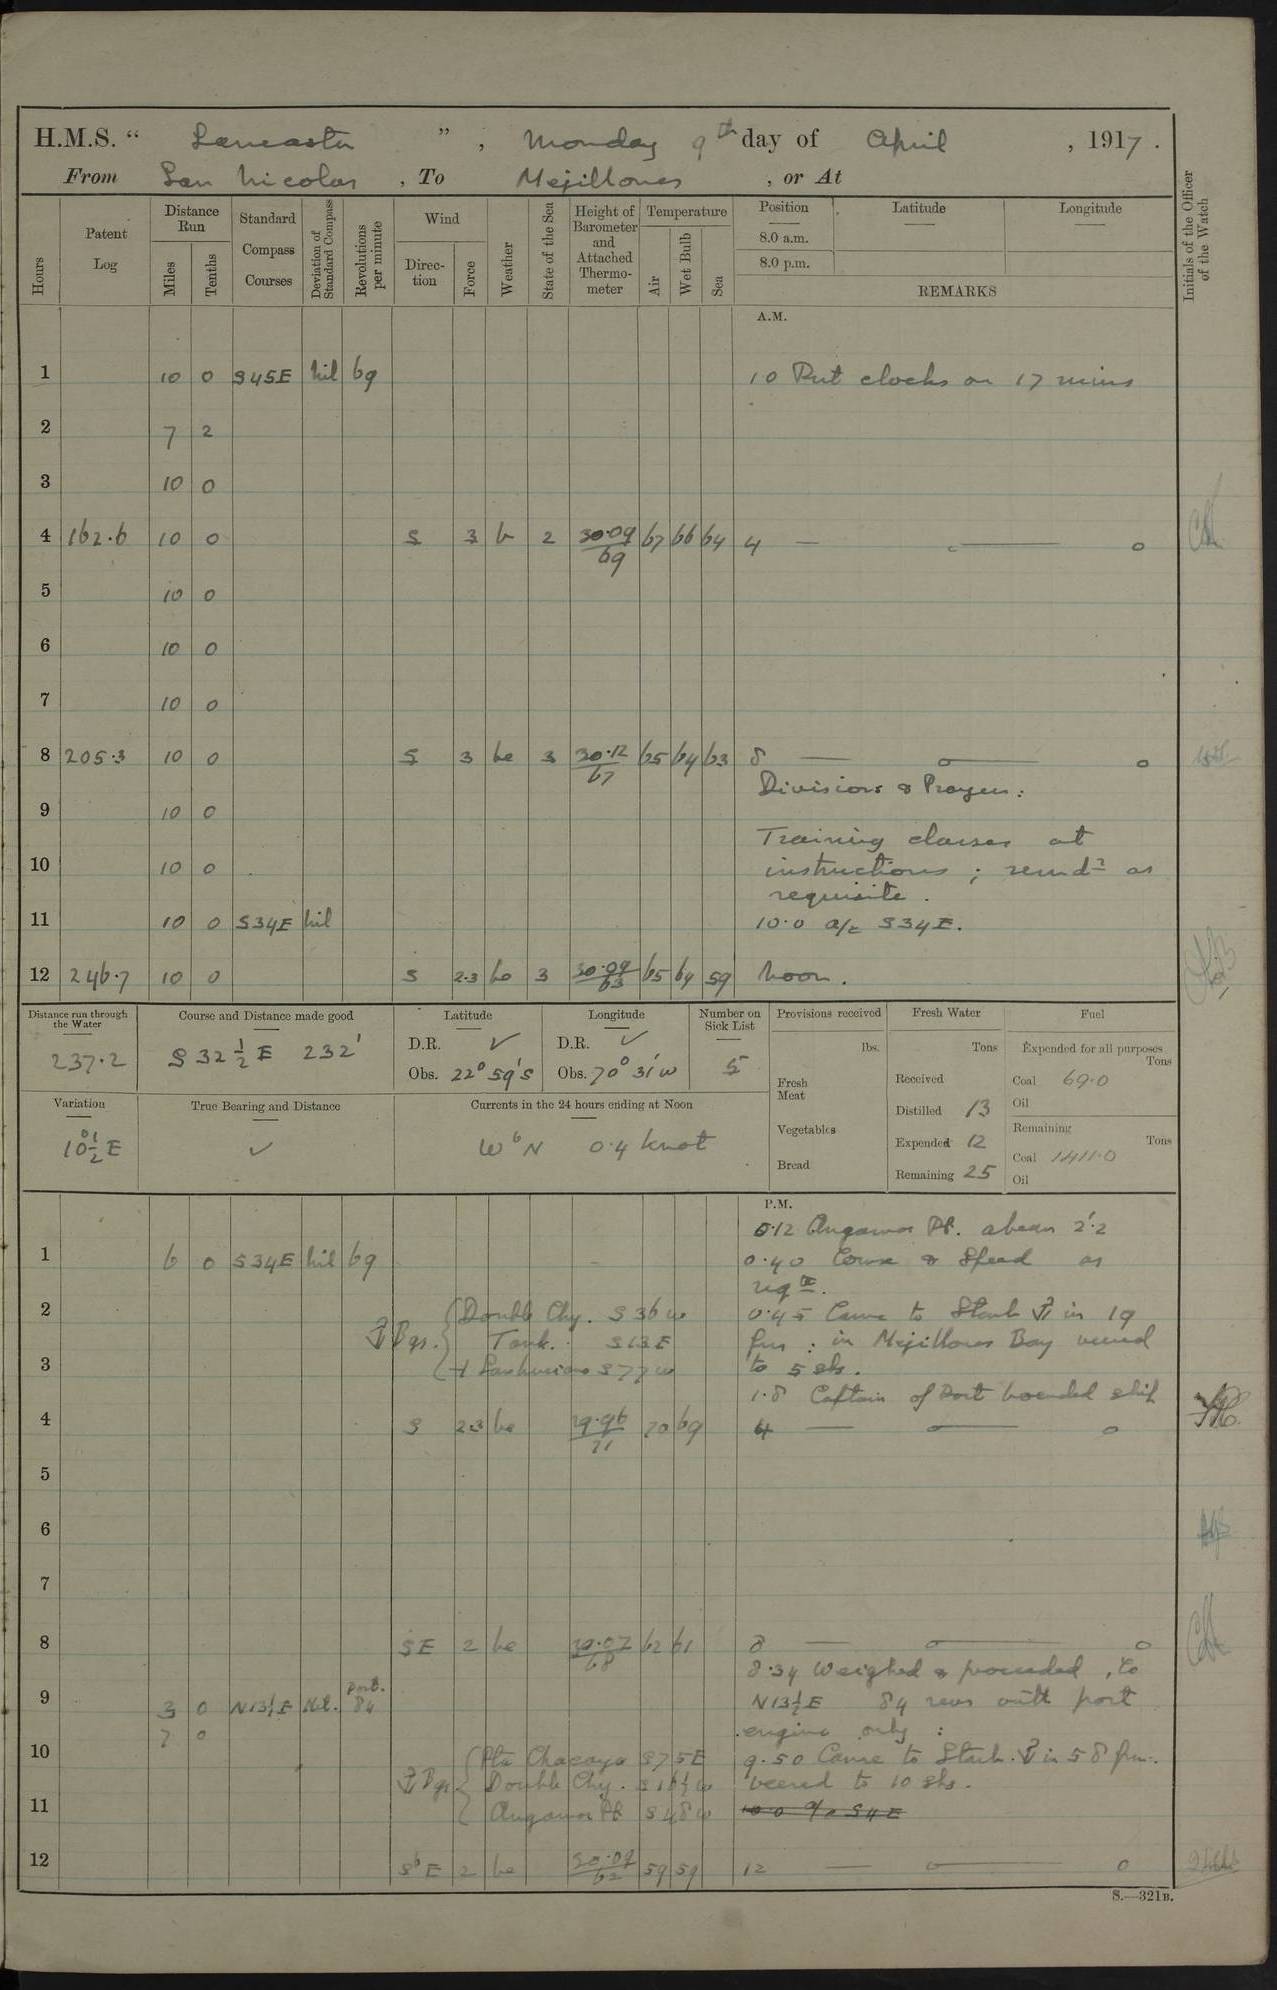 H.M.S. " Lancaster ", Monday 9th day of April, 1917.
From San Nicolas, To Mejillones, or At
Hours Patent Log Distance Run Miles Tenths Standard Compass Courses Deviation of Standard Compass Revolutions per minute Wind Direction Force Weather State of the Sea Height of Barometer and Attached Thermometer Temperature Air Wet Bulb Sea Position 8.0 a.m. 8.0 p.m. Latitude Longitude REMARKS Initials of the Officer of the Watch
A.M.
1 10 0 S45E Nil 69 10 Put clocks on 17 mins
2 7 2
3 10 0
4 162.6 10 0 S 3 b 2 30.09/69 67 66 64 4 — o
5 10 0
6 10 0
7 10 0
8 205.3 10 0 S 3 bc 3 30.12/67 65 64 63 8 — o — o
Divisions & Prayers:
9 10 0
Training classes at
10 10 0 instructions; remdr as
requisite.
11 10 0 S34E Nil 10.0 a/c S34E.
12 246.7 10 0 S 2.3 bc 3 30.09/63 65 64 59 Noon.
Distance run through the Water 237.2
Course and Distance made good S 32 1/2 E 232'
Latitude D.R. ✓ Obs. 22° 59's
Longitude D.R. ✓ Obs. 70° 31'w
Number on Sick List 5
Provisions received lbs. Fresh Meat Vegetables Bread
Fresh Water Tons Received Distilled 13 Expended 12 Remaining 25
Fuel Expended for all purposes Tons Coal 69.0 Oil Remaining Tons Coal 1411.0 Oil
Variation 10°1/2 E
True Bearing and Distance ✓
Currents in the 24 hours ending at Noon WbN 0.4 knot
P.M.
0.12 Angamos Pt. abeam 2'.2
1 6 0 S34E Nil 69 0.40 Course & Speed as
reqte.
2 Double Chy. S 36 w 0.45 Came to Starb ⚓ in 19
⚓ Bgs. Tank. S13E fms: in Mejillones Bay veered
3 S77w to 5 shs.
1.8 Captain of Port boarded ship
4 S 2.3 bc 29.96/71 70 69 4 — o — o
5
6
7
8 SE 2 bc 30.07/68 62 61 8 — o — o
8.34 Weighed & proceeded, Co
9 3 0 N13½E Nil. port. 84 N13½E 84 revs with port
7 0 engine only:
10 Pta Chacaya S75E 9.50 Came to Starb. ⚓ in 58 fms.
⚓ Bgs Double Chy. S16½w veered to 10 shs.
11 Angamos Pt S48w 10.0 a/c S4E
12 SbE 2 bc 30.09/62 59 59 12 — o — o
S.—321B.